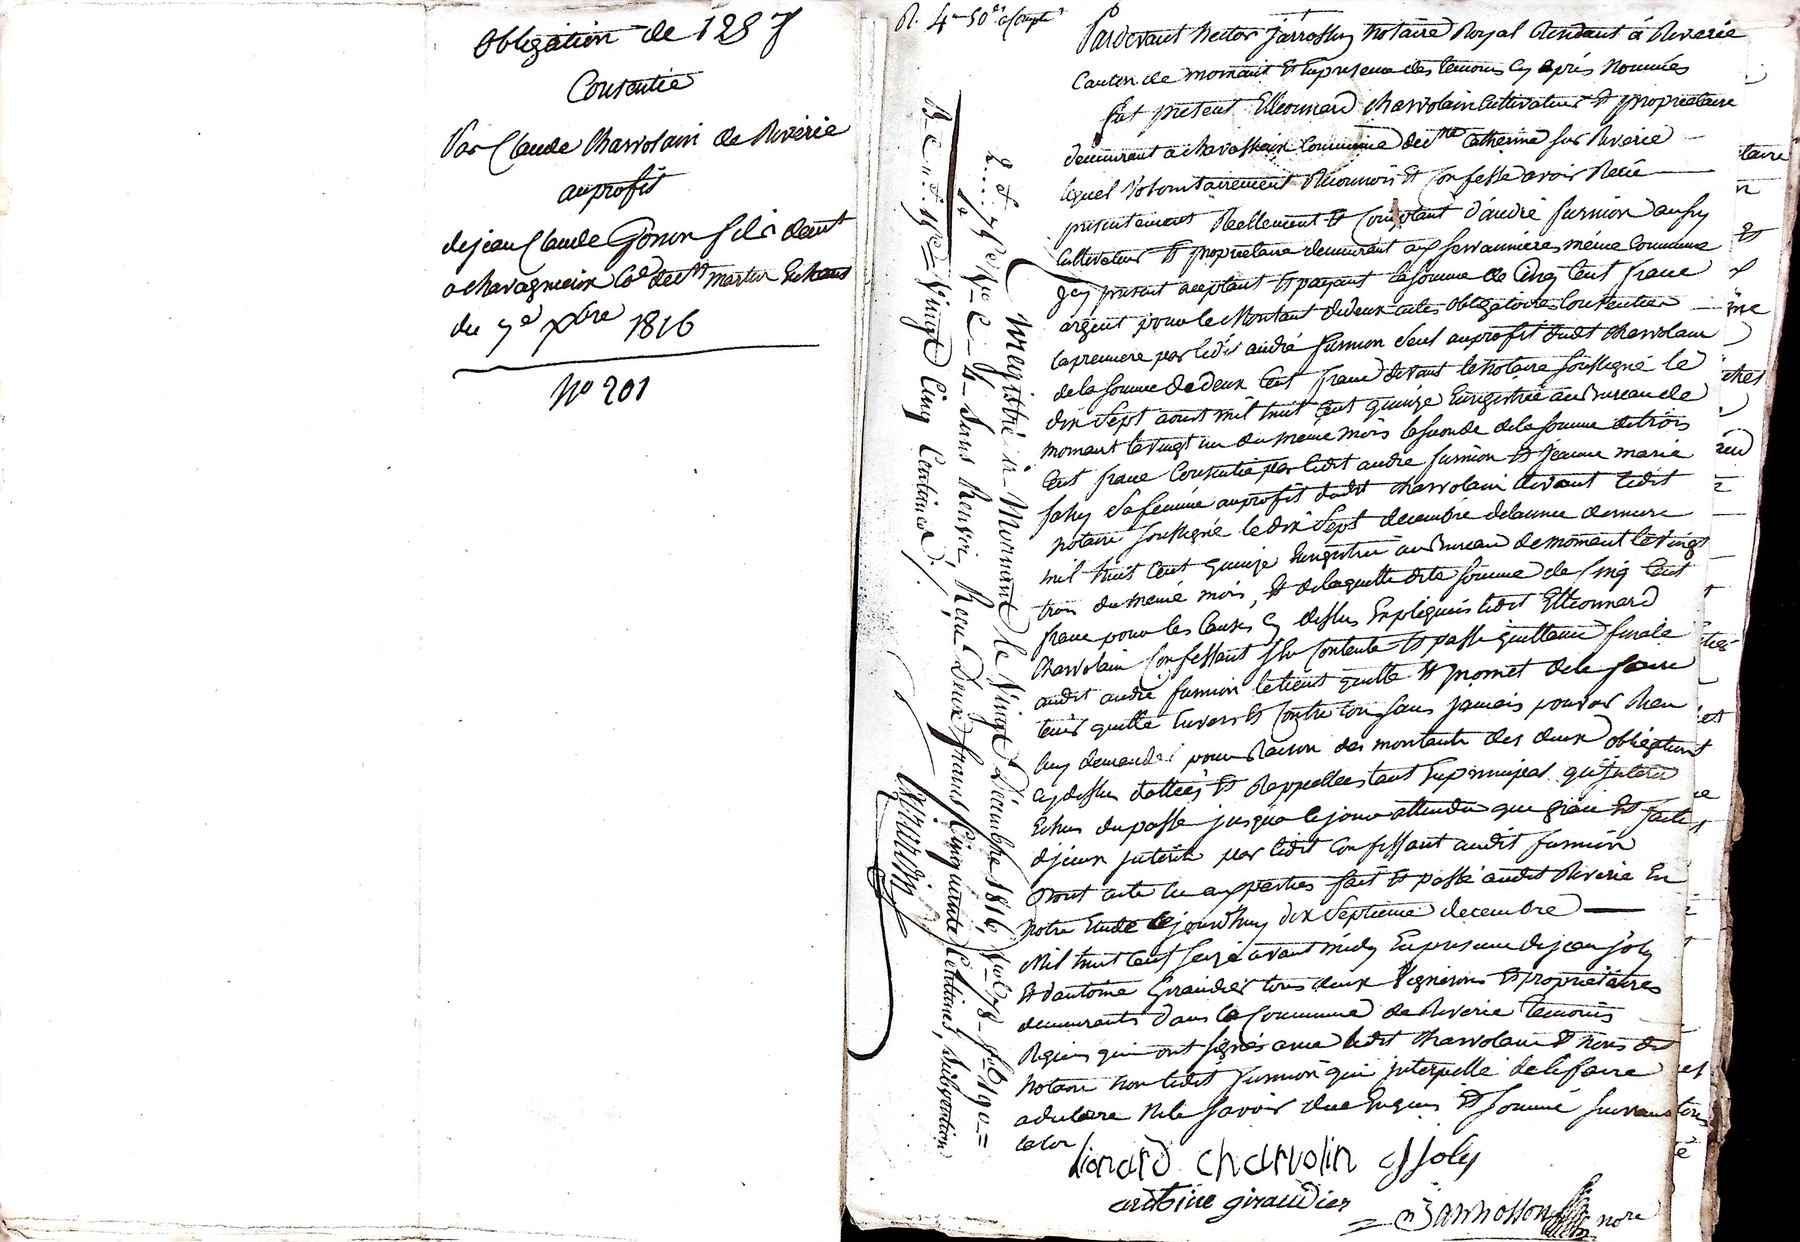 Obligation de 128 f
Consentie
Par Claude Charvolain de Riverie
au profit
de jean Claude Gonon fils demt
a chavagnieux Cne de st martin En haut
du 7e xbre 1816
No 201
R. 4 - 50 c
Pardevant hector jarrosson Notaire Royal Résidant à Riverie
Canton de mornant Et En presence des temoins cy après Nommés
fut présent Elleonnard charvolain Cultivateur Et propriétaire
demeurant a chavassieux Commune de Ste Catherine sur Riverie
lequel Volontairement Reconnoit Et Confesse avoir Reçu
présentement Réellement Et Comptant d'andré furnion aussy
Cultivateur Et propriétaire demeurant aux même Commune
Jcy présent aceptant Et payant la somme de Cinq Cent franc
argent pour le Montant de deux actes obligatoires Consenties
la première par ledit andré furnion seul au profit dudt charvolain
de la somme de deux Cent franc devant le Notaire soussigné le
dix Sept aoust mil huit Cent quinze Enregistrée au Bureau de
mornant le vingt un du même mois la seconde de la somme de trois
Cent franc Consentie par ledit andré furnion Et jeanne marie
sa femme au profit dudit charvolain devant ledit
Notaire soussigné le dix Sept decembre de l'année derniere
mil huit Cent quinze Enregistrée au Bureau de mornant le vingt
trois du même mois, Et de laquelle dite somme de Cinq Cent
franc pour les Causes cy dessus Expliquées ledit Elleonnard
charvolain Confessant s'En Contente Et passe quittance finale
audit andré furnion le tient quitte Et promet de le faire
tenir quitte Envers Et Contre tous sans jamais pouvoir Rien
luy demander pour Raison des montants des deux obligations
cy dessus dattées Et Rappellées tant En principal qu'jnterets
Echus du passé jusqu'a ce jour attendu que grace Est faite
d'jceux jnterets par ledit Confessant audit furnion
Dont acte lu aux parties fait Et passé audit Riverie En
Notre Etude Cejourd'huy dix Septieme decembre
Mil huit Cent seize avant midy En presence de jean joly
Et d'antoine Giraudier tous deux Vignerons Et propriétaires
demeurants dans la Commune de Riverie temoins
Requis qui ont signés avec ledit charvolain Et Nous dit
Notaire non ledit furnion qui jnterpellé de le faire
a déclaré Ne le savoir de ce Enquis Et sommé suivant
la loi
Lionard charvolin joly
antoine giraudier
jarrosson nore
Enregistré à Mornant le Vingt Décembre 1816,
4 - Sans Renvoi, Reçu Deux francs Cinquante Centimes, Subvention
Vingt Cinq Centimes